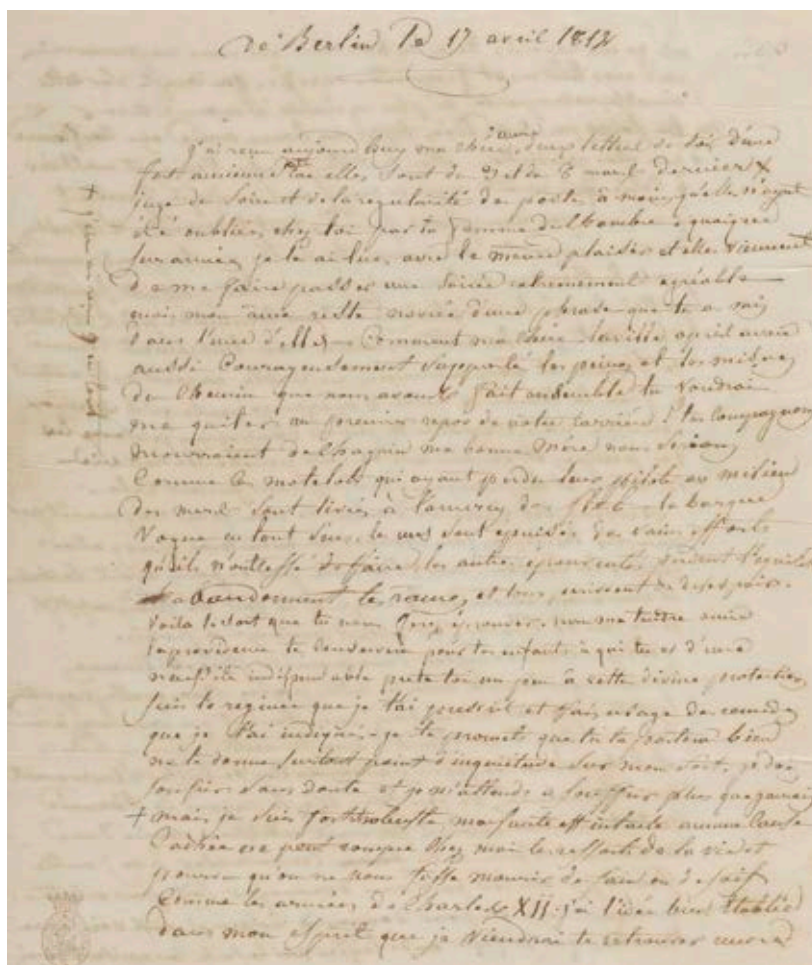 De Berlin le 17 avril 1812
j'ai reçu aujourd'huy ma chère amie deux lettres de toi d'une
fort ancienne date elles sont du 7 et du 8 mars dernier
juge du soin et de la regularité des postes à moins qu'elles n'ayent
été oubliées chez toi par ta femme de chambre, quoique
surannées je les ai lues avec le même plaisir et elles viennent
de me faire passer une soirée extremement agréable
mais mon âme reste navrée d'une phrase que tu a mis
dans l'une d'elles. Comment ma chère après avoir
aussi Courageusement supporté les peines et les misères
du Chemin que nous avons fait ensemble tu voudrais
me quiter au premier repos de notre carrière! tes compagnons
mourraient de chagrin ma bonne mère nous serions
Comme les matelots qui ayant perdu leur pilote au milieu
des mers sont livrés à la mercy des flots la barque
vogue en tout sens, les uns sont épuisés des vains efforts
qu'ils n'ont cessé de faire, les autres épouvantés perdent
abandonnent les rames, et tous perissent de desespoir.
Voila le sort que tu nous ferais éprouver. non ma tendre amie
la providence te conservera pour tes enfants à qui tu es d'une
nécessité indispensable prete toi un peu à cette divine protection
suis le regime que je t'ai prescrit et fais usage du remede
que je t'ai indiqué. je te promets que tu te porteras bien
ne te donne surtout point d'inquietude sur mon sort, je dois
souffrir sans doute et je m'attends à souffrir plus que jamais
+ mais je suis fort robuste ma santé est intacte aucune cause
cachée ne peut rompre chez moi le ressort de la vie et
pourvu qu'on ne nous fasse mourir de faim ou de soif
Comme les armées de Charles XII. j'ai l'idée bien établie
dans mon esprit que je viendrai te retrouver encore